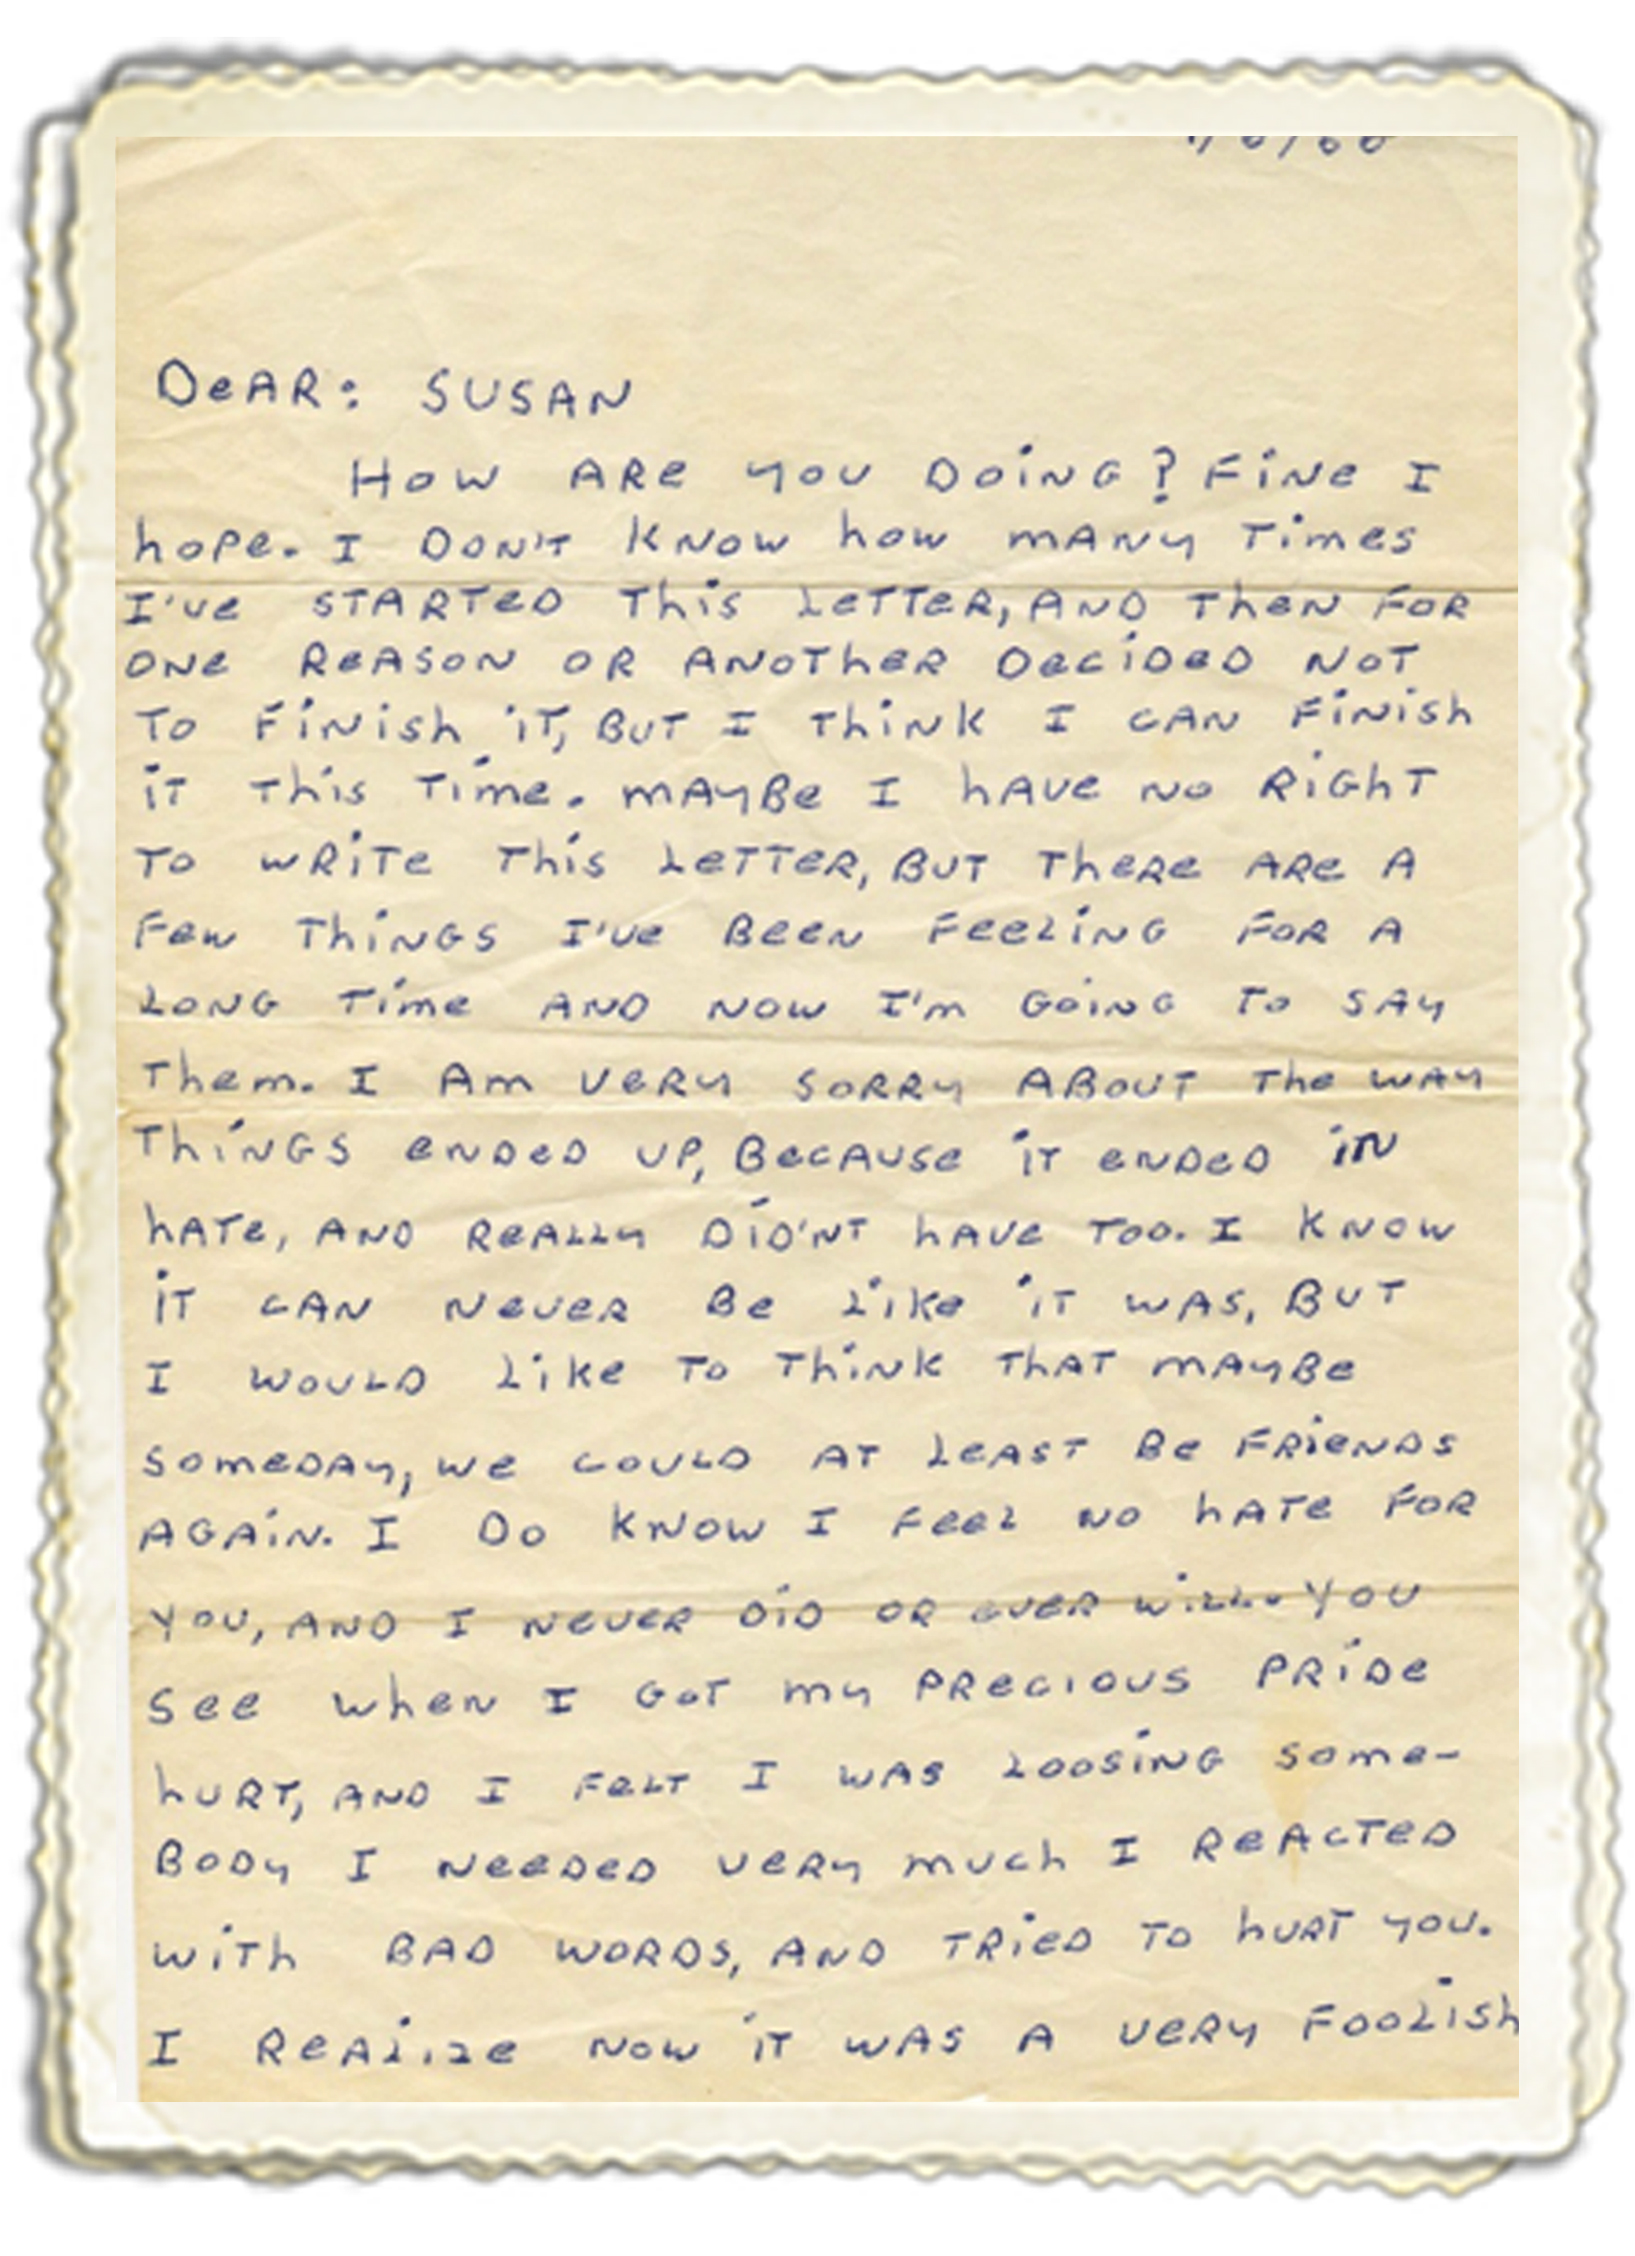 DeAR: SUSAN
How ARe you DoiNG? FiNe I
hope. I DON'T KNow how mANy Times
I've STARTeD This LeTTeR, AND TheN FoR
oNe ReASoN oR ANoTheR DeciDeD NoT
To FiNish iT, BuT I ThiNK I cAN FiNish
iT This Time. mAyBe I hAve No RiGhT
To wRiTe This LeTTeR, BuT TheRe ARe A
Few ThiNGS I've BeeN FeeLiNG FoR A
LoNG Time AND Now I'm GoiNG To SAy
Them. I Am veRy SoRRy ABouT The wAy
ThiNGS eNDeD uP, BecAuse iT eNDeD iN
hATe, AND ReALLy DiD'NT hAve Too. I KNow
iT cAN NeveR Be Like iT wAS, BuT
I wouLD Like To ThiNK ThAT mAyBe
SomeDAy, we couLD AT LeAST Be FRieNDS
AGAiN. I Do KNow I FeeL No hATe FoR
You, AND I NeveR DiD oR eveR wiLL. You
See wheN I GoT my PRecious PRiDe
huRT, AND I FeLT I wAS LoosiNG Some-
BoDy I NeeDeD veRy much I ReAcTeD
wiTh BAD woRDS, AND TRieD To huRT you.
I ReALize Now iT wAS A veRy FooLish